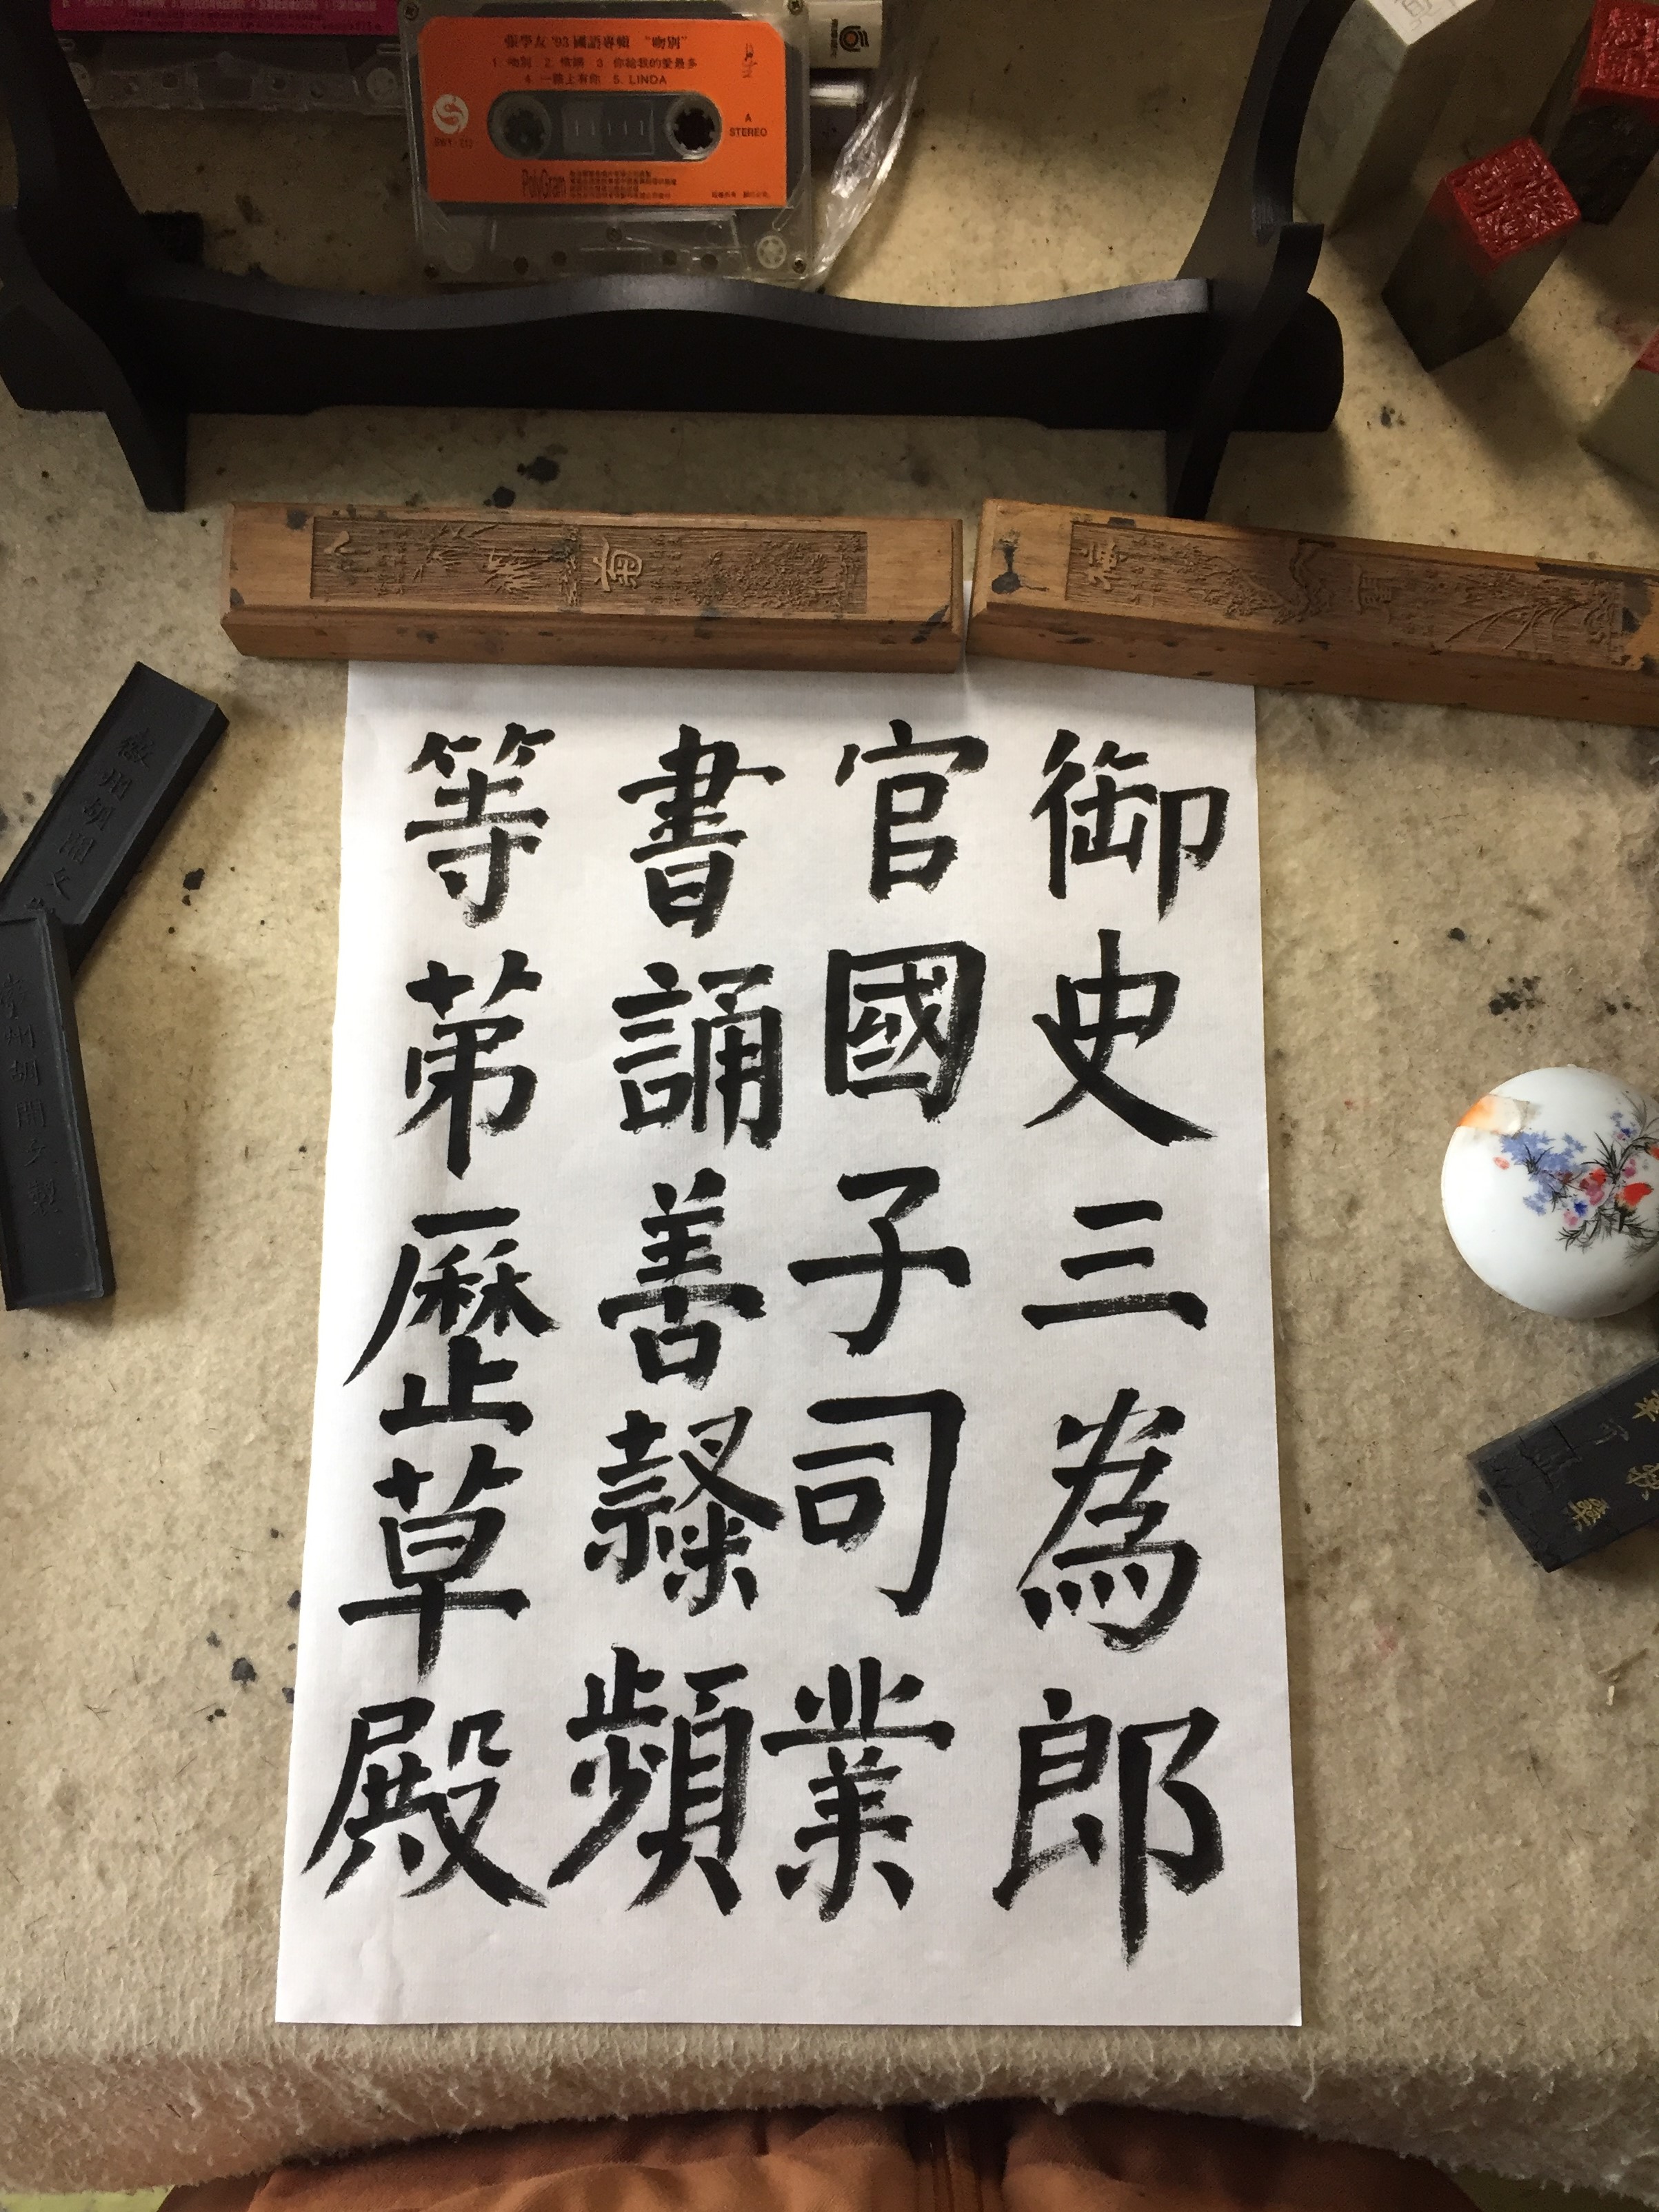 張學友 '93 國語專輯 "吻別"
1. 吻別 2. 情網 3. 你給我的愛最多
4. 一路上有你 5. LINDA
A
STEREO
PolyGram
菊
梅
御史三為郎
官國子司業
書誦善隸頻
等苐歷草殿
徽州胡開文
徽州胡開文製